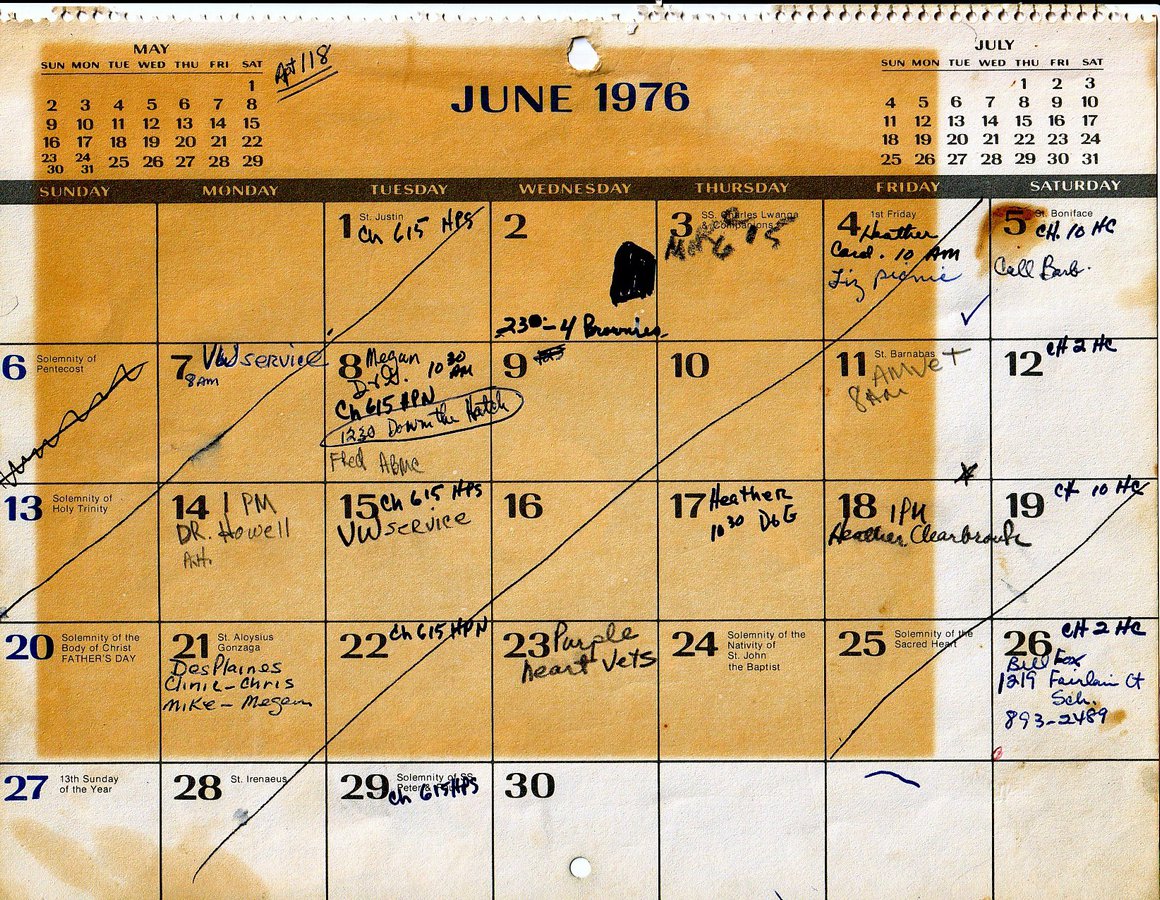 MAY
SUN MON TUE WED THU FRI SAT
1
2 3 4 5 6 7 8
9 10 11 12 13 14 15
16 17 18 19 20 21 22
23 24 25 26 27 28 29
30 31
Apt 118
JUNE 1976
JULY
SUN MON TUE WED THU FRI SAT
1 2 3
4 5 6 7 8 9 10
11 12 13 14 15 16 17
18 19 20 21 22 23 24
25 26 27 28 29 30 31
SUNDAY MONDAY TUESDAY WEDNESDAY THURSDAY FRIDAY SATURDAY
1 St. Justin
Ch 615 HPS
2
230-4 Brownies
3 SS. Charles Lwanga
& Companions
615
4 1st Friday
Heather
Card. 10 AM
Liz picnic
5 St. Boniface
CH. 10 HC
Call Barb.
6 Solemnity of
Pentecost
7 VW service
8AM
8 Megan
Dr G. 10 30 AM
Ch 615 HPN
1230 Down the Hatch
Fred ABMC
9
10
11 St. Barnabas
AMVET
8AM
12 CH 2 HC
13 Solemnity of
Holy Trinity
14 1 PM
DR. Howell
15 Ch 615 HPS
VW service
16
17 Heather
10 30 D6G
18 1PM
Heather Clearbrook
19 CH 10 HC
20 Solemnity of the
Body of Christ
FATHER'S DAY
21 St. Aloysius
Gonzaga
DesPlaines
Clinic - Chris
Mike - Megan
22 Ch 615 HPN
23 Purple
heart Vets
24 Solemnity of the
Nativity of
St. John
the Baptist
25 Solemnity of the
Sacred Heart
26 CH 2 HC
Bill Fox
1219 Fairlain Ct
Sch.
893-2489
27 13th Sunday
of the Year
28 St. Irenaeus
29 Solemnity of SS.
Peter &
Ch 615 HPS
30